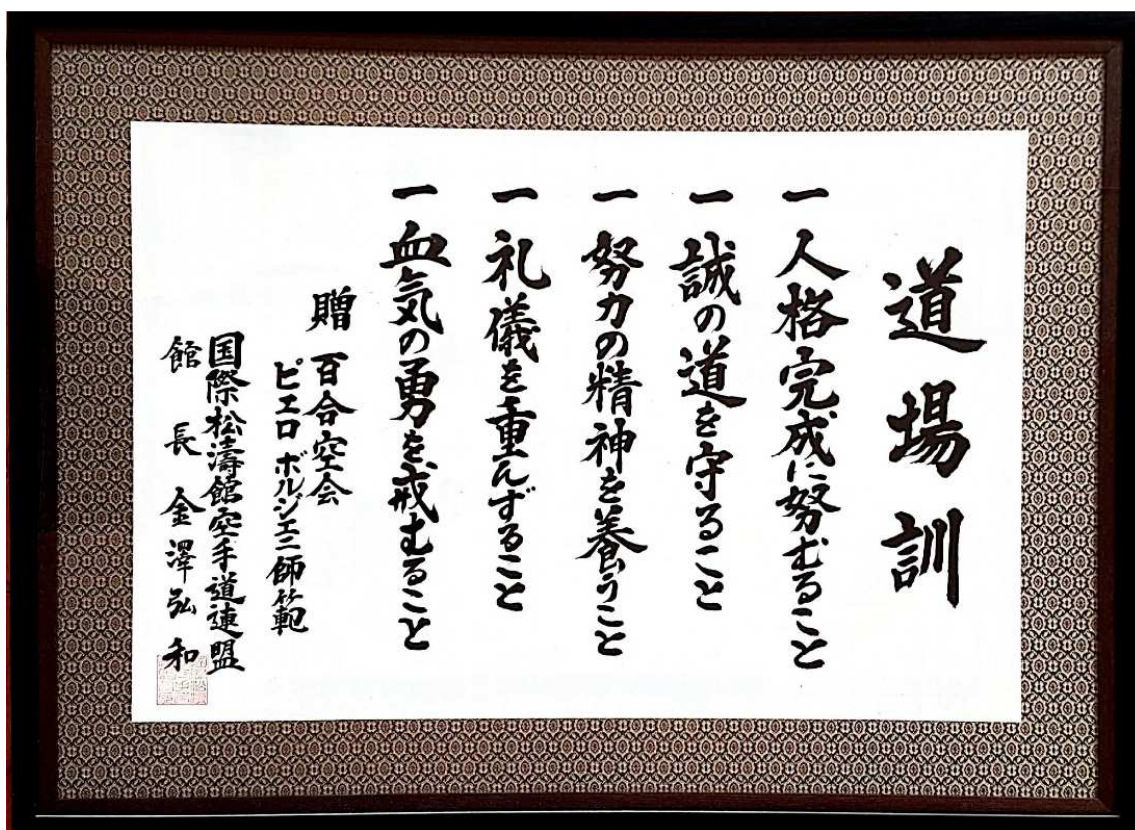 道場訓
一 人格完成に努むること
一 誠の道を守ること
一 努力の精神を養うこと
一 礼儀を重んずること
一 血気の勇を戒むること
贈 百合空会
ピエロ ボルジェニ師範
国際松濤館空手道連盟
館長 金澤弘和